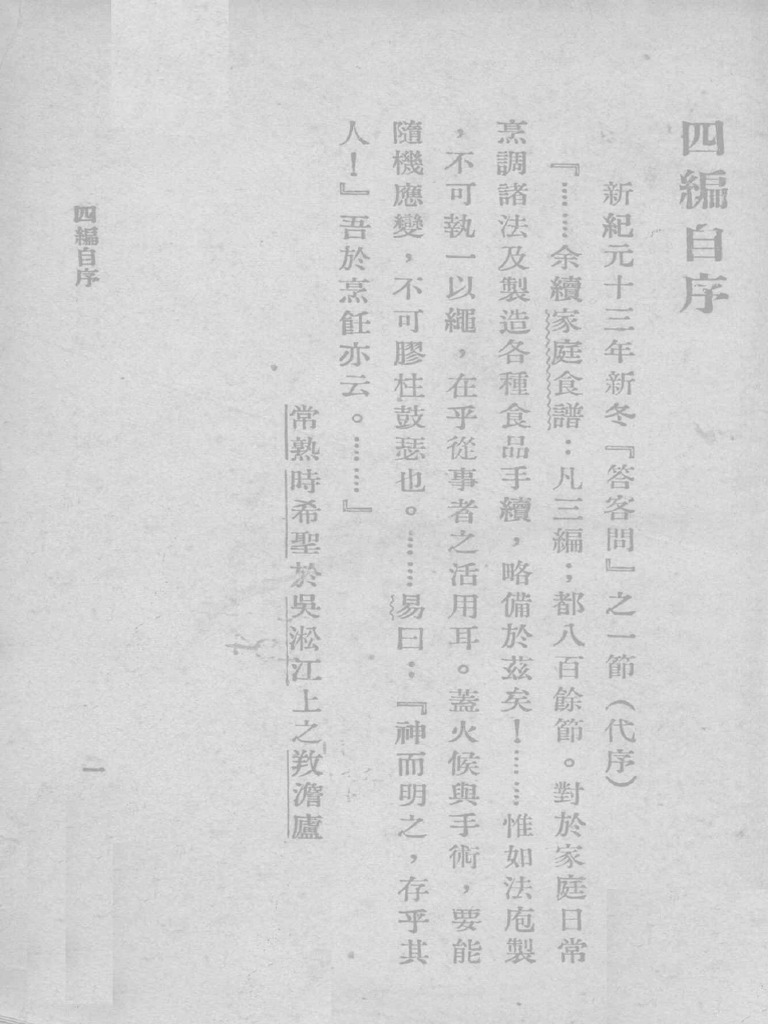 四編自序
新紀元十三年新冬『答客問』之一節(代序)
『……余續家庭食譜：凡三編；都八百餘節。對於家庭日常
烹調諸法及製造各種食品手續，略備於茲矣！……惟如法庖製
，不可執一以繩，在乎從事者之活用耳。蓋火候與手術，要能
隨機應變，不可膠柱鼓瑟也。……易曰：『神而明之，存乎其
人！』吾於烹飪亦云。……』
常熟時希聖於吳淞江上之敩澹廬
四編自序
一